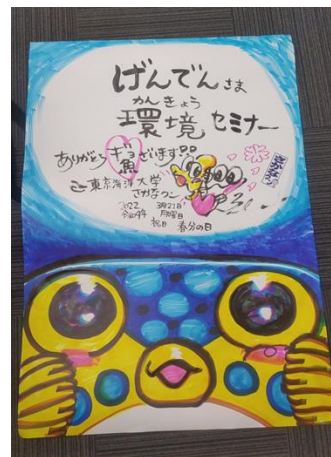 げんでんさま
かんきょう
環境 セミナー
ありがとうギョ
魚ざいます!!
東京海洋大学
さかなクン
2022 3月21日
令和4年 月曜日
祝日 春分の日